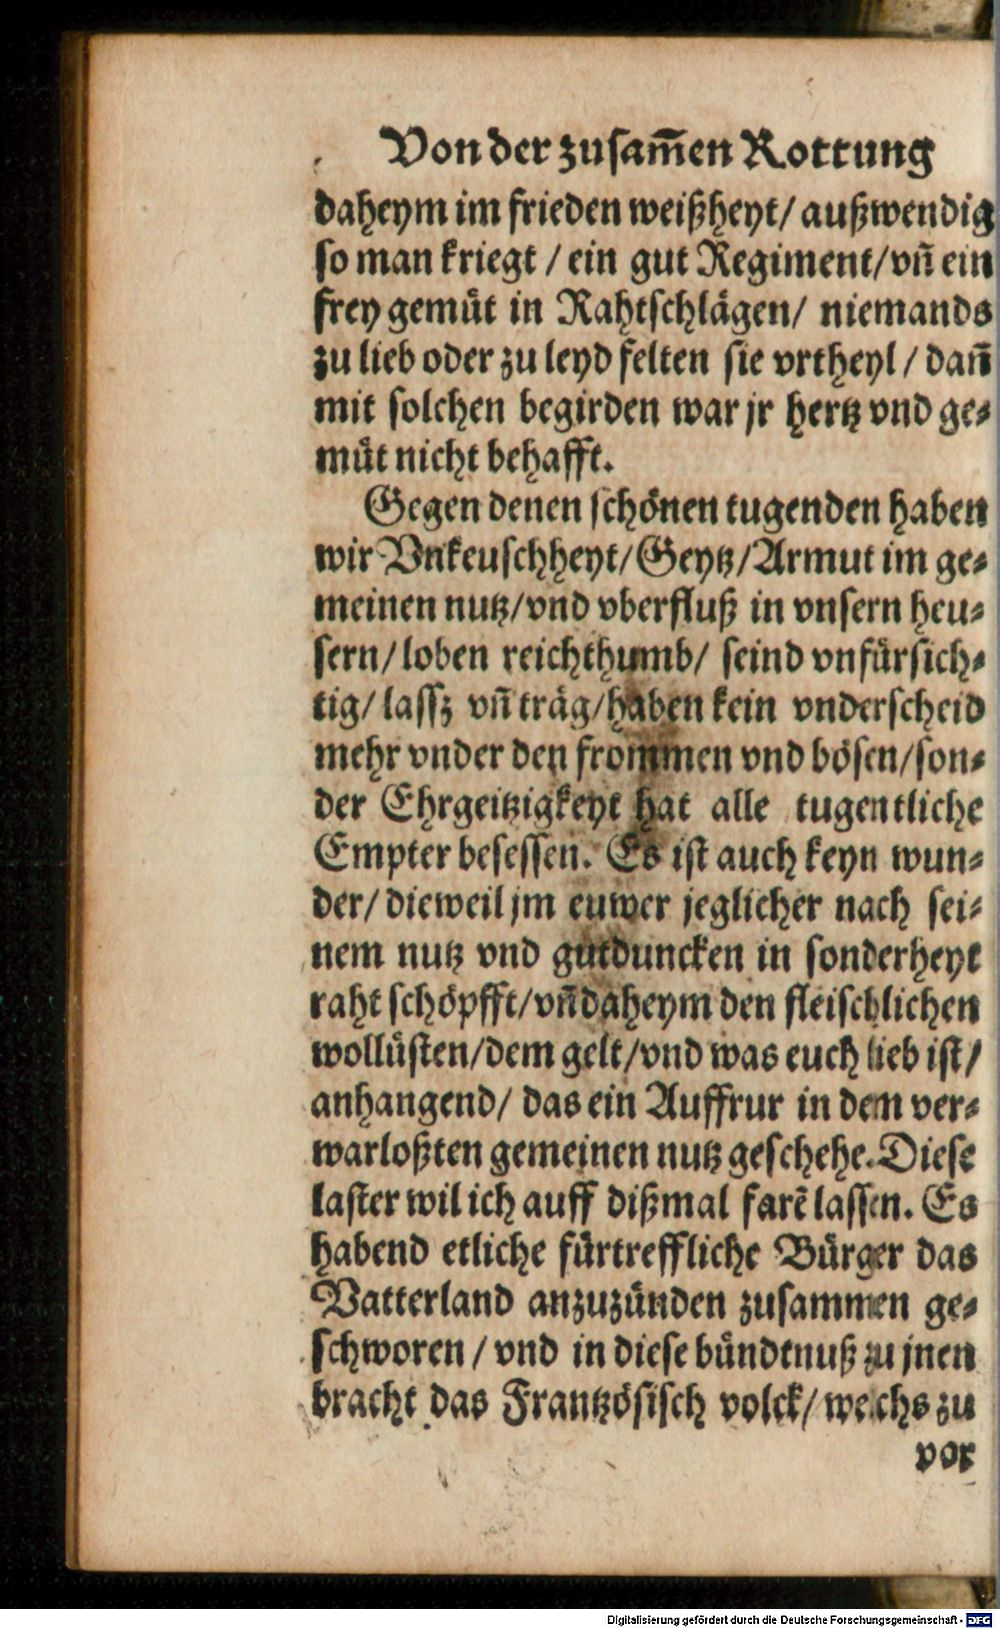 Von der zusam̄en Rottung
daheym im frieden weißheyt/ außwendig
so man kriegt / ein gut Regiment/vn̄ ein
frey gemüt in Rahtschlägen/ niemands
zu lieb oder zu leyd felten sie vrtheyl / dan̄
mit solchen begirden war jr hertz vnd ge⸗
müt nicht behafft.
Gegen denen schönen tugenden haben
wir Vnkeuschheyt/Geytz/Armut im ge⸗
meinen nutz/vnd vberfluß in vnsern heu⸗
sern/loben reichthumb/ seind vnfürsich⸗
tig/ lassz vn̄ träg/haben kein vnderscheid
mehr vnder den frommen vnd bösen/son⸗
der Ehrgeitzigkeyt hat alle tugentliche
Empter besessen. Es ist auch keyn wun⸗
der/ dieweil jm euwer jeglicher nach sei⸗
nem nutz vnd gutduncken in sonderheyt
raht schöpfft/vn̄ daheym den fleischlichen
wollüsten/dem gelt/vnd was euch lieb ist/
anhangend/ das ein Auffrur in dem ver⸗
warloßten gemeinen nutz geschehe. Diese
laster wil ich auff dißmal farē lassen. Es
habend etliche fürtreffliche Bürger das
Vatterland anzuzünden zusammen ge⸗
schworen / vnd in diese bündtnuß zu jnen
bracht das Frantzösisch volck/ welchs zu
vor
Digitalisierung gefördert durch die Deutsche Forschungsgemeinschaft - DFG